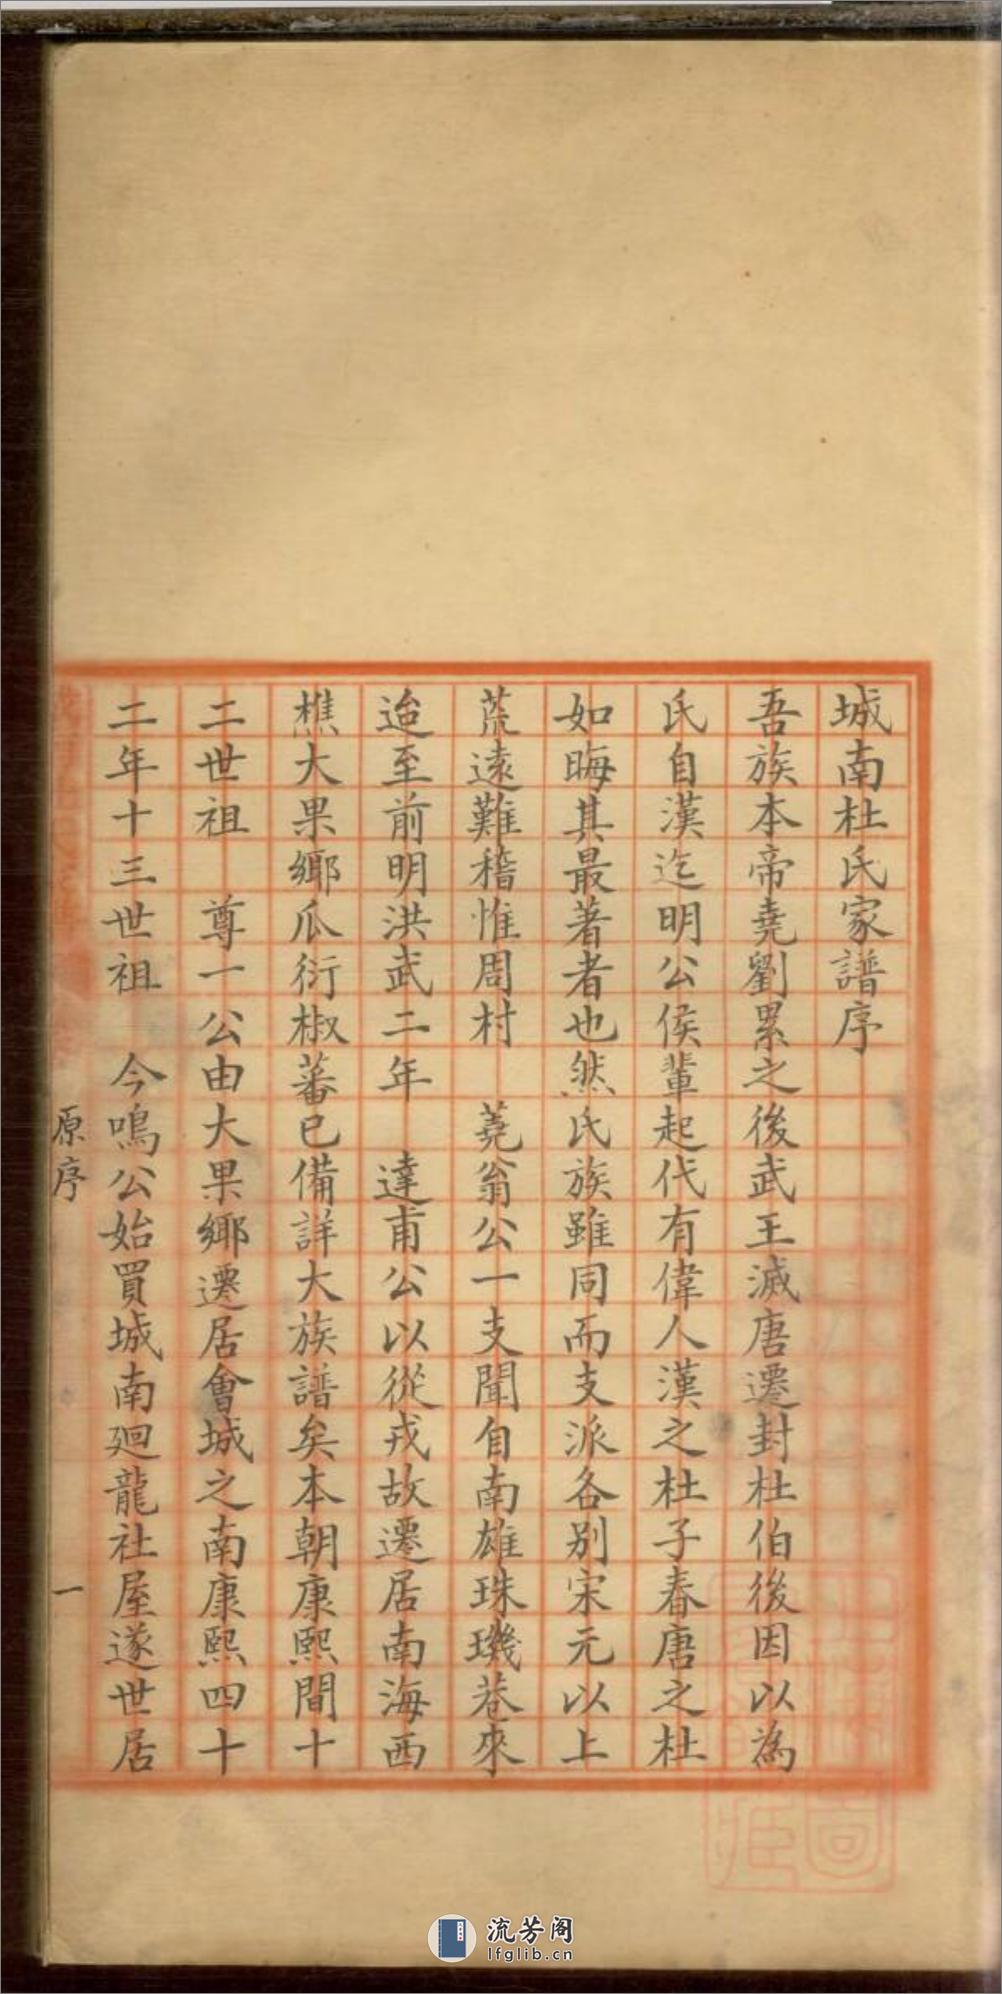 城南杜氏家譜序
吾族本帝堯劉累之後武王滅唐遷封杜伯後因以為
氏自漢迄明公侯輩起代有偉人漢之杜子春唐之杜
如晦其最著者也然氏族雖同而支派各別宋元以上
荒遠難稽惟周村　蕘翁公一支聞自南雄珠璣巷來
迨至前明洪武二年　達甫公以從戎故遷居南海西
樵大果鄉瓜衍椒蕃已備詳大族譜矣本朝康熙間十
二世祖　尊一公由大果鄉遷居會城之南康熙四十
二年十三世祖　今鳴公始買城南廻龍社屋遂世居
原序
一
流芳阁
lfglib.cn